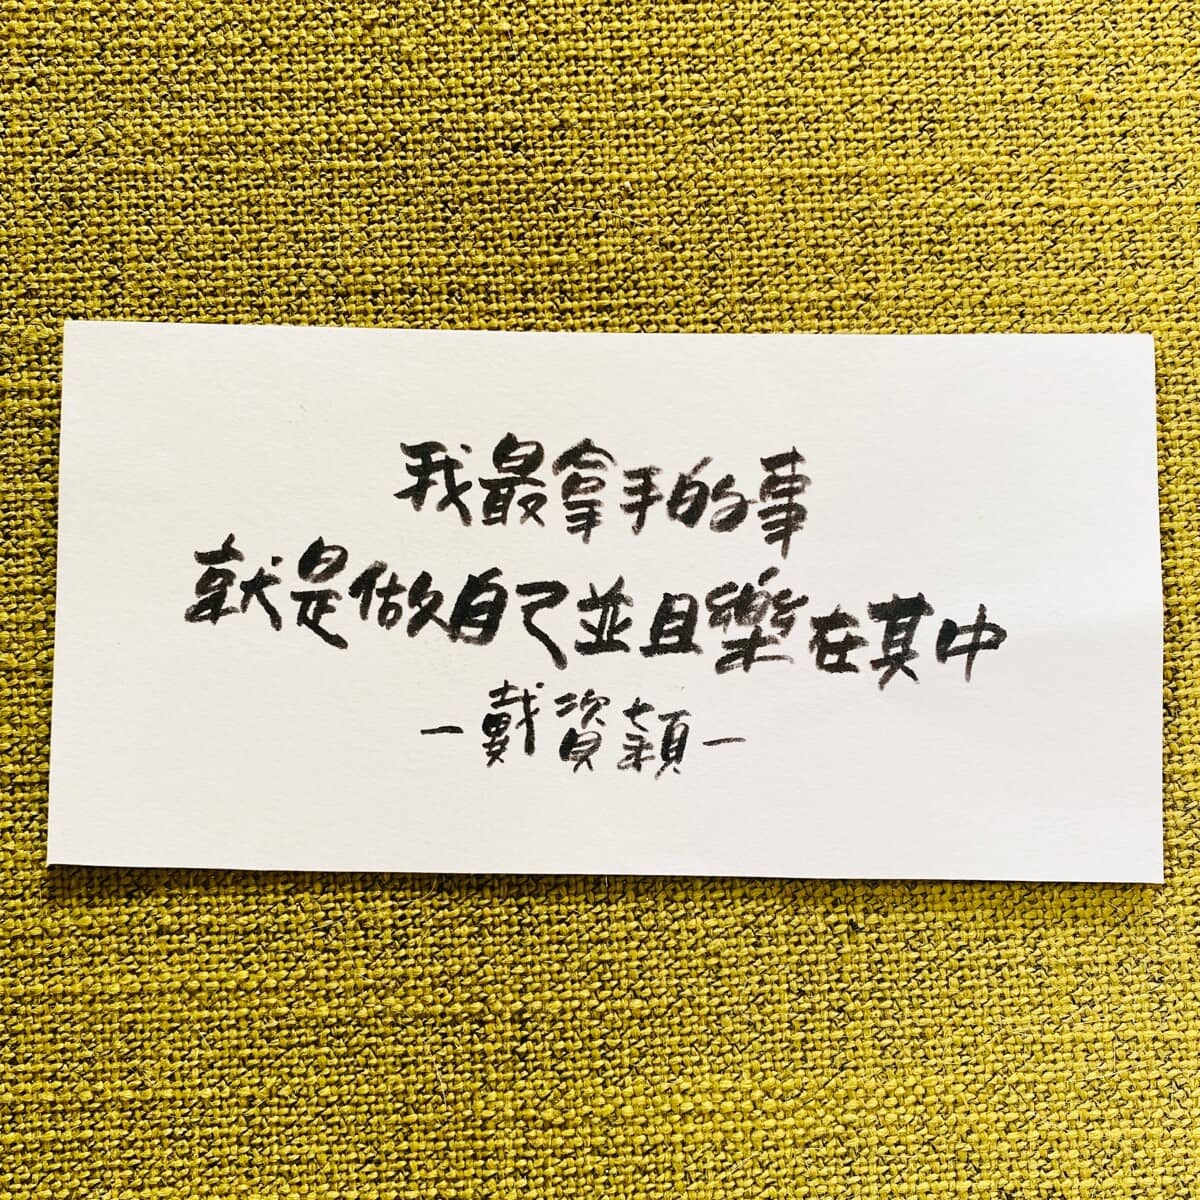 我最拿手的事
就是做自己並且樂在其中
－戴資穎－